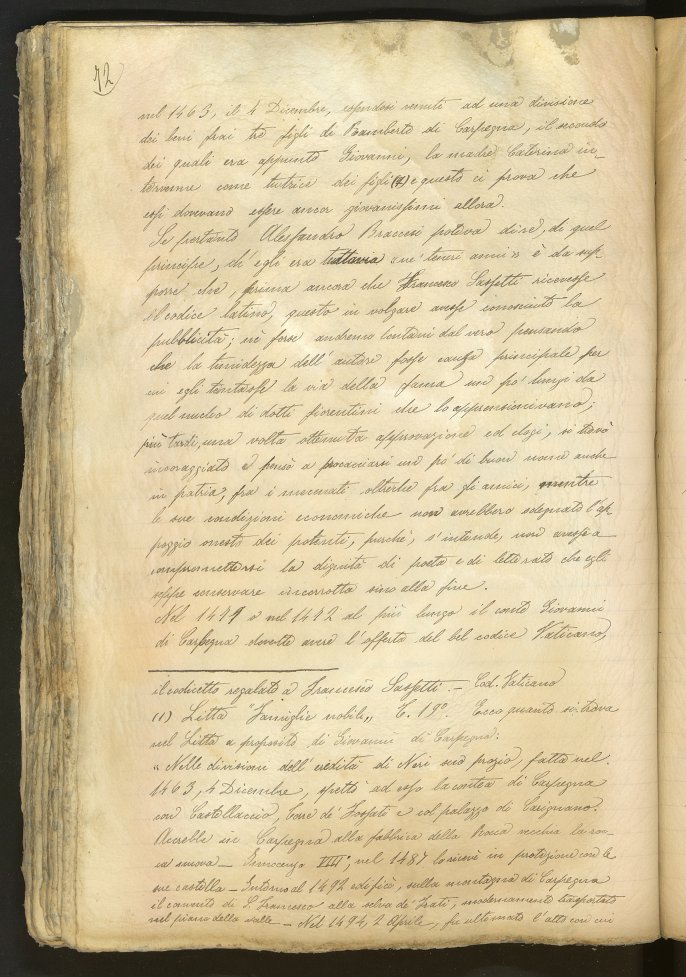 72
nel 1463, il 4 Dicembre, essendosi venuti ad una divisione
dei beni frai tre figli di Ramberto di Carpegna, il secondo
dei quali era appunto Giovanni, la madre Caterina in-
tervenne come tutrice dei figli (1) e questo ci prova che
essi dovevano essere ancor giovanissimi allora.
Se pertanto Alessandro Braccesi poteva dire, di quel
principe, ch'egli era tuttavia "ne' teneri anni" è da sup-
porre che, prima ancora che Francesco Sassetti ricevesse
il codice latino, questo in volgare avesse conosciuto la
pubblicità; nè forse andremo lontani dal vero pensando
che la timidezza dell'autore fosse causa principale per
cui egli tentasse la via della fama un po' lungi da
quel nucleo di dotti fiorentini che lo apprensionivano;
più tardi, una volta ottenuta approvazione ed elogi, si trovò
incoraggiato e pensò a procacciarsi un po' di buon nome anche
in patria, fra i mecenati oltreche fra gli amici, mentre
le sue condizioni economiche non avrebbero sdegnato l'ap-
poggio onesto dei potenti, purchè, s'intende, non avesse a
compromettersi la dignità di poeta e di letterato che egli
seppe conservare incorrotta sino alla fine.
Nel 1491 o nel 1492 al più lungo il conte Giovanni
di Carpegna dovette avere l'offerta del bel codice Vaticano,
il codicetto regalato a Francesco Sassetti. - Cod. Vaticano
(1) Litta "Famiglie nobili" T. 19°. Ecco quanto si trova
nel Litta a proposito di Giovanni di Carpegna:
"Nelle divisioni dell'eredità di Neri suo prozio, fatta nel
1463, 4 Dicembre, spettò ad esso la contea di Carpegna
con Castellaccio, Corè de' Fossati e col palazzo di Carignano.
Accrebbe in Carpegna alla fabbrica della Rocca vecchia la roc-
ca nuova - Innocenzo VIII°, nel 1487 lo ricevè in protezione con le
sue castella - Intorno al 1492 edificò, sulla montagna di Carpegna
il convento di S. Francesco alla selva de' Frati, modernamente trasportato
nel piano della valle - Nel 1494, 2 Aprile, fu ultimato l'atto con cui